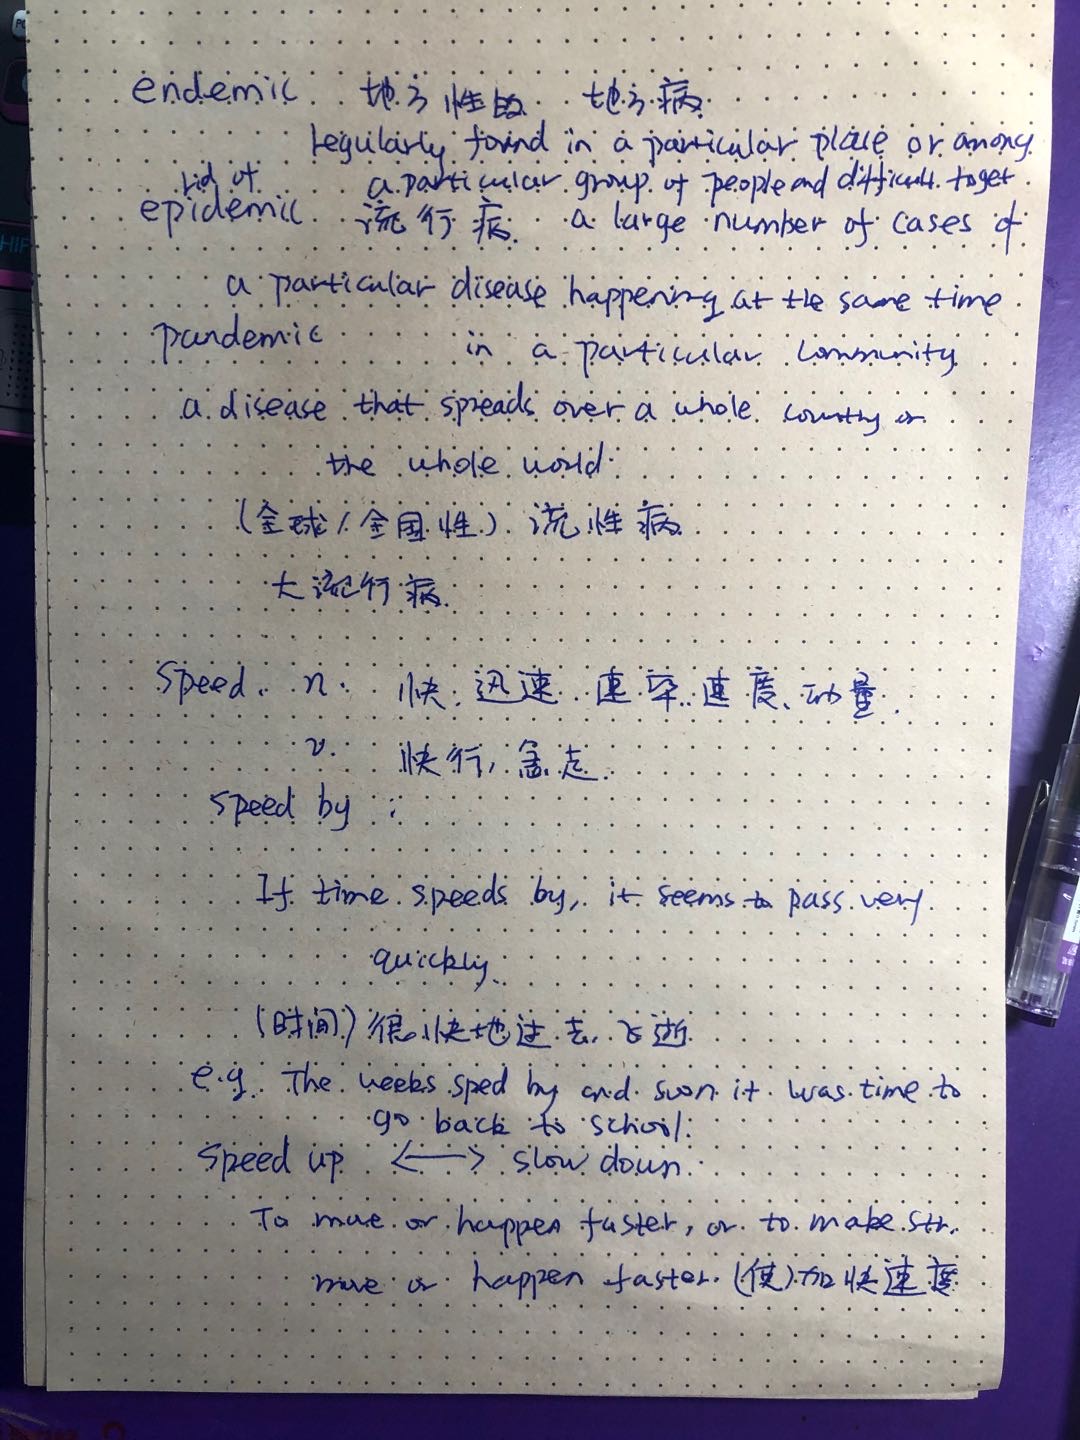 endemic 地方性的 地方病
regularly found in a particular place or among
a particular group of people and difficult to get
rid of
epidemic 流行病 a large number of cases of
a particular disease happening at the same time
in a particular community
pandemic
a disease that spreads over a whole country or
the whole world
(全球/全国性) 流性病
大流行病
speed n. 快, 迅速 速率, 速度, 动量
v. 快行, 急走
speed by :
If time speeds by, it seems to pass very
quickly
(时间) 很快地过去, 飞逝
e.g. The weeks sped by and soon it was time to
go back to school.
speed up <—> slow down
To move or happen faster, or to make sth.
move or happen faster. (使) 加快速度